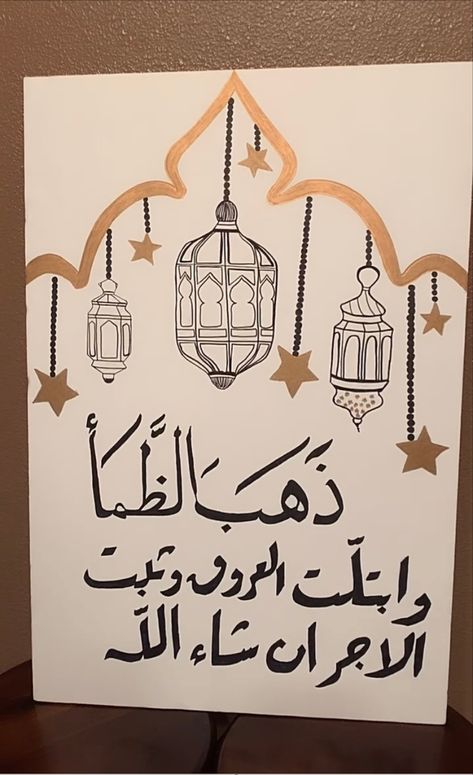 ذَهَبَ الظَّمأ
وابتلّت العروق وثبت
الاجر ان شاء اللّه